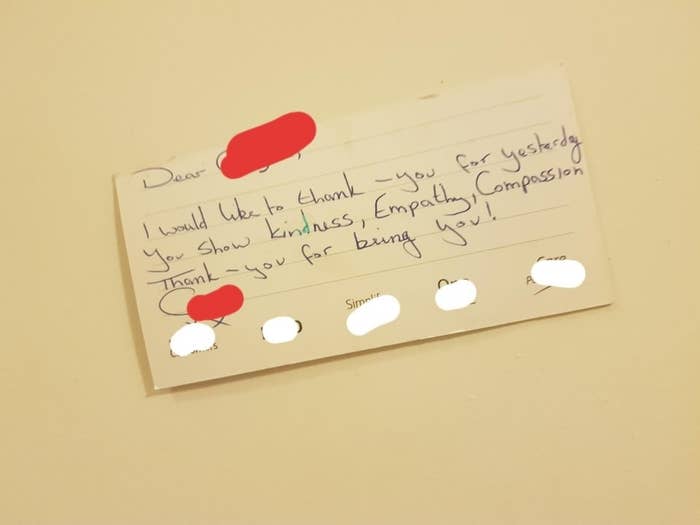 Dear
I would like to thank-you for yesterday
You show kindness, Empathy, Compassion
Thank-you for being you!
x